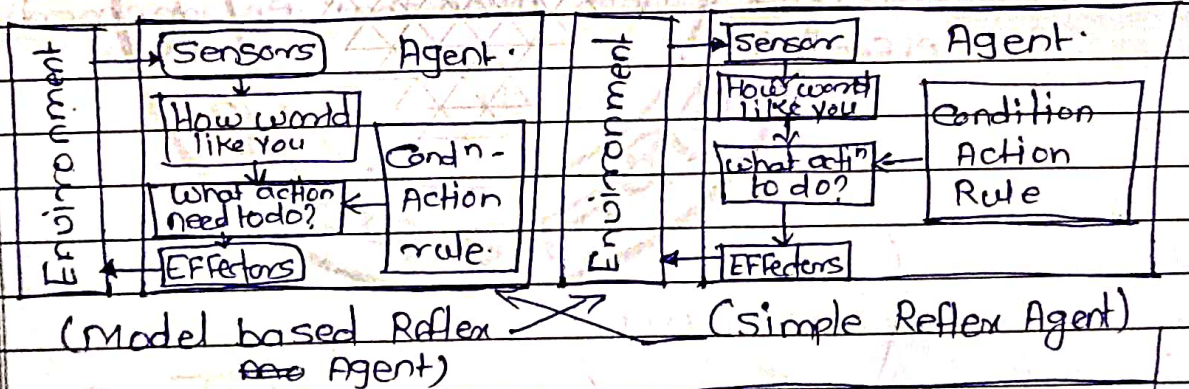 Environment
Sensors
Agent.
How world
like you
What action
need to do?
Condn-
Action
rule.
EFFectors
(Model based Reflex
Agent)
Environment
Sensor
Agent.
How world
like you
what actiⁿ
to do?
Condition
Action
Rule
EFFecters
(simple Reflex Agent)